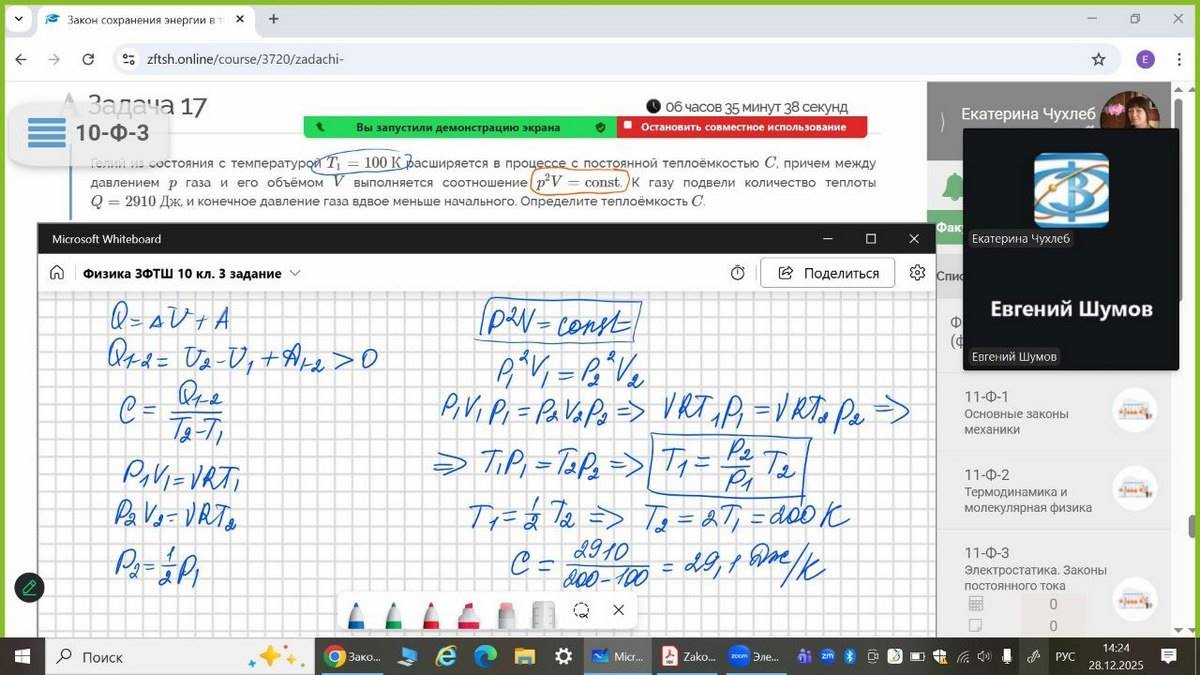 Закон сохранения энергии в т
zftsh.online/course/3720/zadachi-
E
Задача 17
06 часов 35 минут 38 секунд
10-Ф-3
Вы запустили демонстрацию экрана
Остановить совместное использование
Гелий из состояния с температурой T₁ = 100 K расширяется в процессе с постоянной теплоёмкостью C, причем между
давлением p газа и его объёмом V выполняется соотношение p²V = const. К газу подвели количество теплоты
Q = 2910 Дж, и конечное давление газа вдвое меньше начального. Определите теплоёмкость C.
Екатерина Чухлеб
Екатерина Чухлеб
Евгений Шумов
Евгений Шумов
Фак
Спис
Microsoft Whiteboard
Физика ЗФТШ 10 кл. 3 задание
Поделиться
Q = ΔU + A
Q₁₋₂ = U₂ - U₁ + A₁₋₂ > 0
C = Q₁₋₂ / (T₂ - T₁)
P₁V₁ = νRT₁
P₂V₂ = νRT₂
P₂ = 1/2 P₁
P²V = const
P₁²V₁ = P₂²V₂
P₁V₁P₁ = P₂V₂P₂ => νRT₁P₁ = νRT₂P₂ =>
=> T₁P₁ = T₂P₂ => T₁ = P₂/P₁ T₂
T₁ = 1/2 T₂ => T₂ = 2T₁ = 200 K
C = 2910 / (200 - 100) = 29,1 Дж/К
11-Ф-1
Основные законы
механики
11-Ф-2
Термодинамика и
молекулярная физика
11-Ф-3
Электростатика. Законы
постоянного тока
0
0
Поиск
Зако...
Micr...
Zako...
Эле...
РУС
14:24
28.12.2025